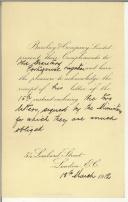 Barclay & Company Limited
present their Compliments to
the Secretary
Portuguese Legation and have
the pleasure to acknowledge the
receipt of his letter of the
15th instant enclosing the two
letters, signed by the Minister
for which they are much
obliged
54 Lombard Street
London E.C.
18th March 1912